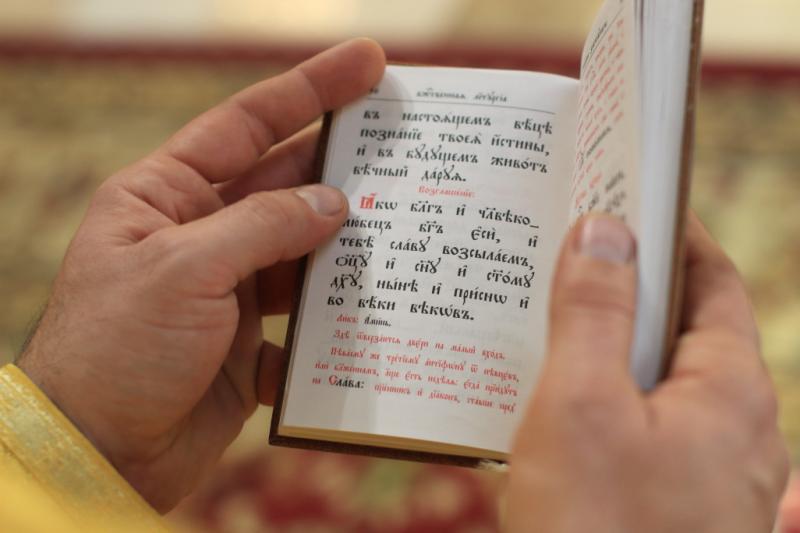 бж҃твеннаѧ літꙋргі́а
въ настоѧ́щемъ вѣ́цѣ
позна́нїе твоеѧ̀ и҆́стины,
и҆ въ бꙋ́дꙋщемъ живо́тъ
вѣ́чный да́рꙋѧ.
Возглаше́нїе:
Ꙗ҆́кѡ бл҃гъ и҆ чл҃вѣко-
лю́бецъ бг҃ъ є҆сѝ, и҆
тебѣ̀ сла́вꙋ возсыла́емъ,
ѻ҆ц҃ꙋ̀ и҆ сн҃ꙋ и҆ ст҃о́мꙋ
дх҃ꙋ, ны́нѣ и҆ при́снѡ и҆
во вѣ́ки вѣкѡ́въ.
Ли́къ: А҆ми́нь.
Здѣ̀ ѿверза́ютсѧ двє́ри на ма́лый вхо́дъ.
Пѣва́емꙋ же тре́тїемꙋ а҆нтїфѡ́нꙋ ѿ пѣвцє́въ,
и҆лѝ бл҃жє́ннамъ, а҆́ще є҆́сть недѣ́лѧ: є҆гда̀ прїи́дꙋтъ
на Сла́ва: сщ҃е́нникъ и҆ дїа́конъ, ста́вше пред̾